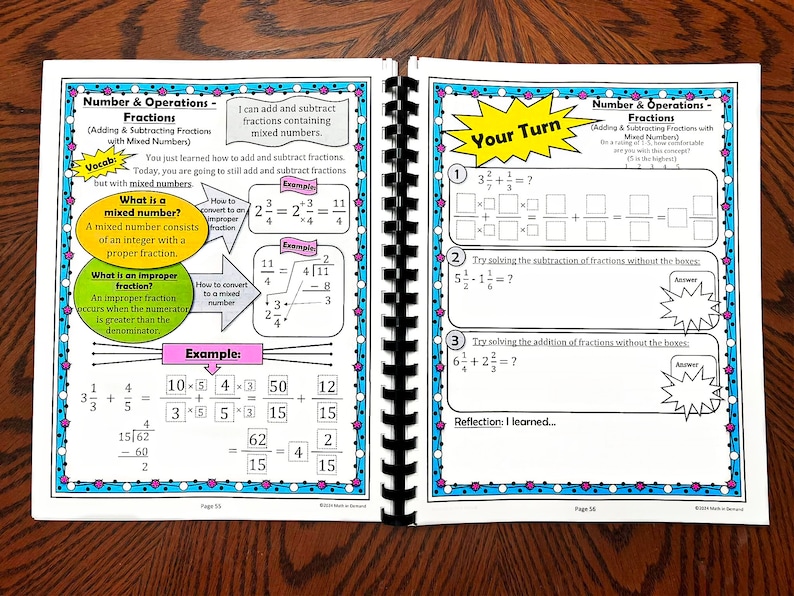 Number & Operations -
Fractions
(Adding & Subtracting Fractions
with Mixed Numbers)
I can add and subtract
fractions containing
mixed numbers.
Vocab:
You just learned how to add and subtract fractions.
Today, you are going to still add and subtract fractions
but with mixed numbers.
What is a
mixed number?
A mixed number consists
of an integer with a
proper fraction.
How to
convert to an
improper
fraction
Example:
2 3/4 = 2 +3/×4 = 11/4
What is an improper
fraction?
An improper fraction
occurs when the numerator
is greater than the
denominator.
How to convert
to a mixed
number
Example:
11/4 = 4)11
2
- 8
3
2 3/4
Example:
3 1/3 + 4/5 = 10 ×5/3 ×5 + 4 ×3/5 ×3 = 50/15 + 12/15
4
15)62
- 60
2
= 62/15 = 4 2/15
Page 55
©2024 Math in Demand
Your Turn
Number & Operations -
Fractions
(Adding & Subtracting Fractions with
Mixed Numbers)
(In a rating of 1-5, how comfortable
are you with this concept?
(5 is the highest)
1 2 3 4 5
1
3 2/7 + 1/3 = ?
× × + × × = + = =
2
Try solving the subtraction of fractions without the boxes:
5 1/2 - 1 1/6 = ?
Answer
3
Try solving the addition of fractions without the boxes:
6 1/4 + 2 2/3 = ?
Answer
Reflection: I learned...
Page 56
©2024 Math in Demand